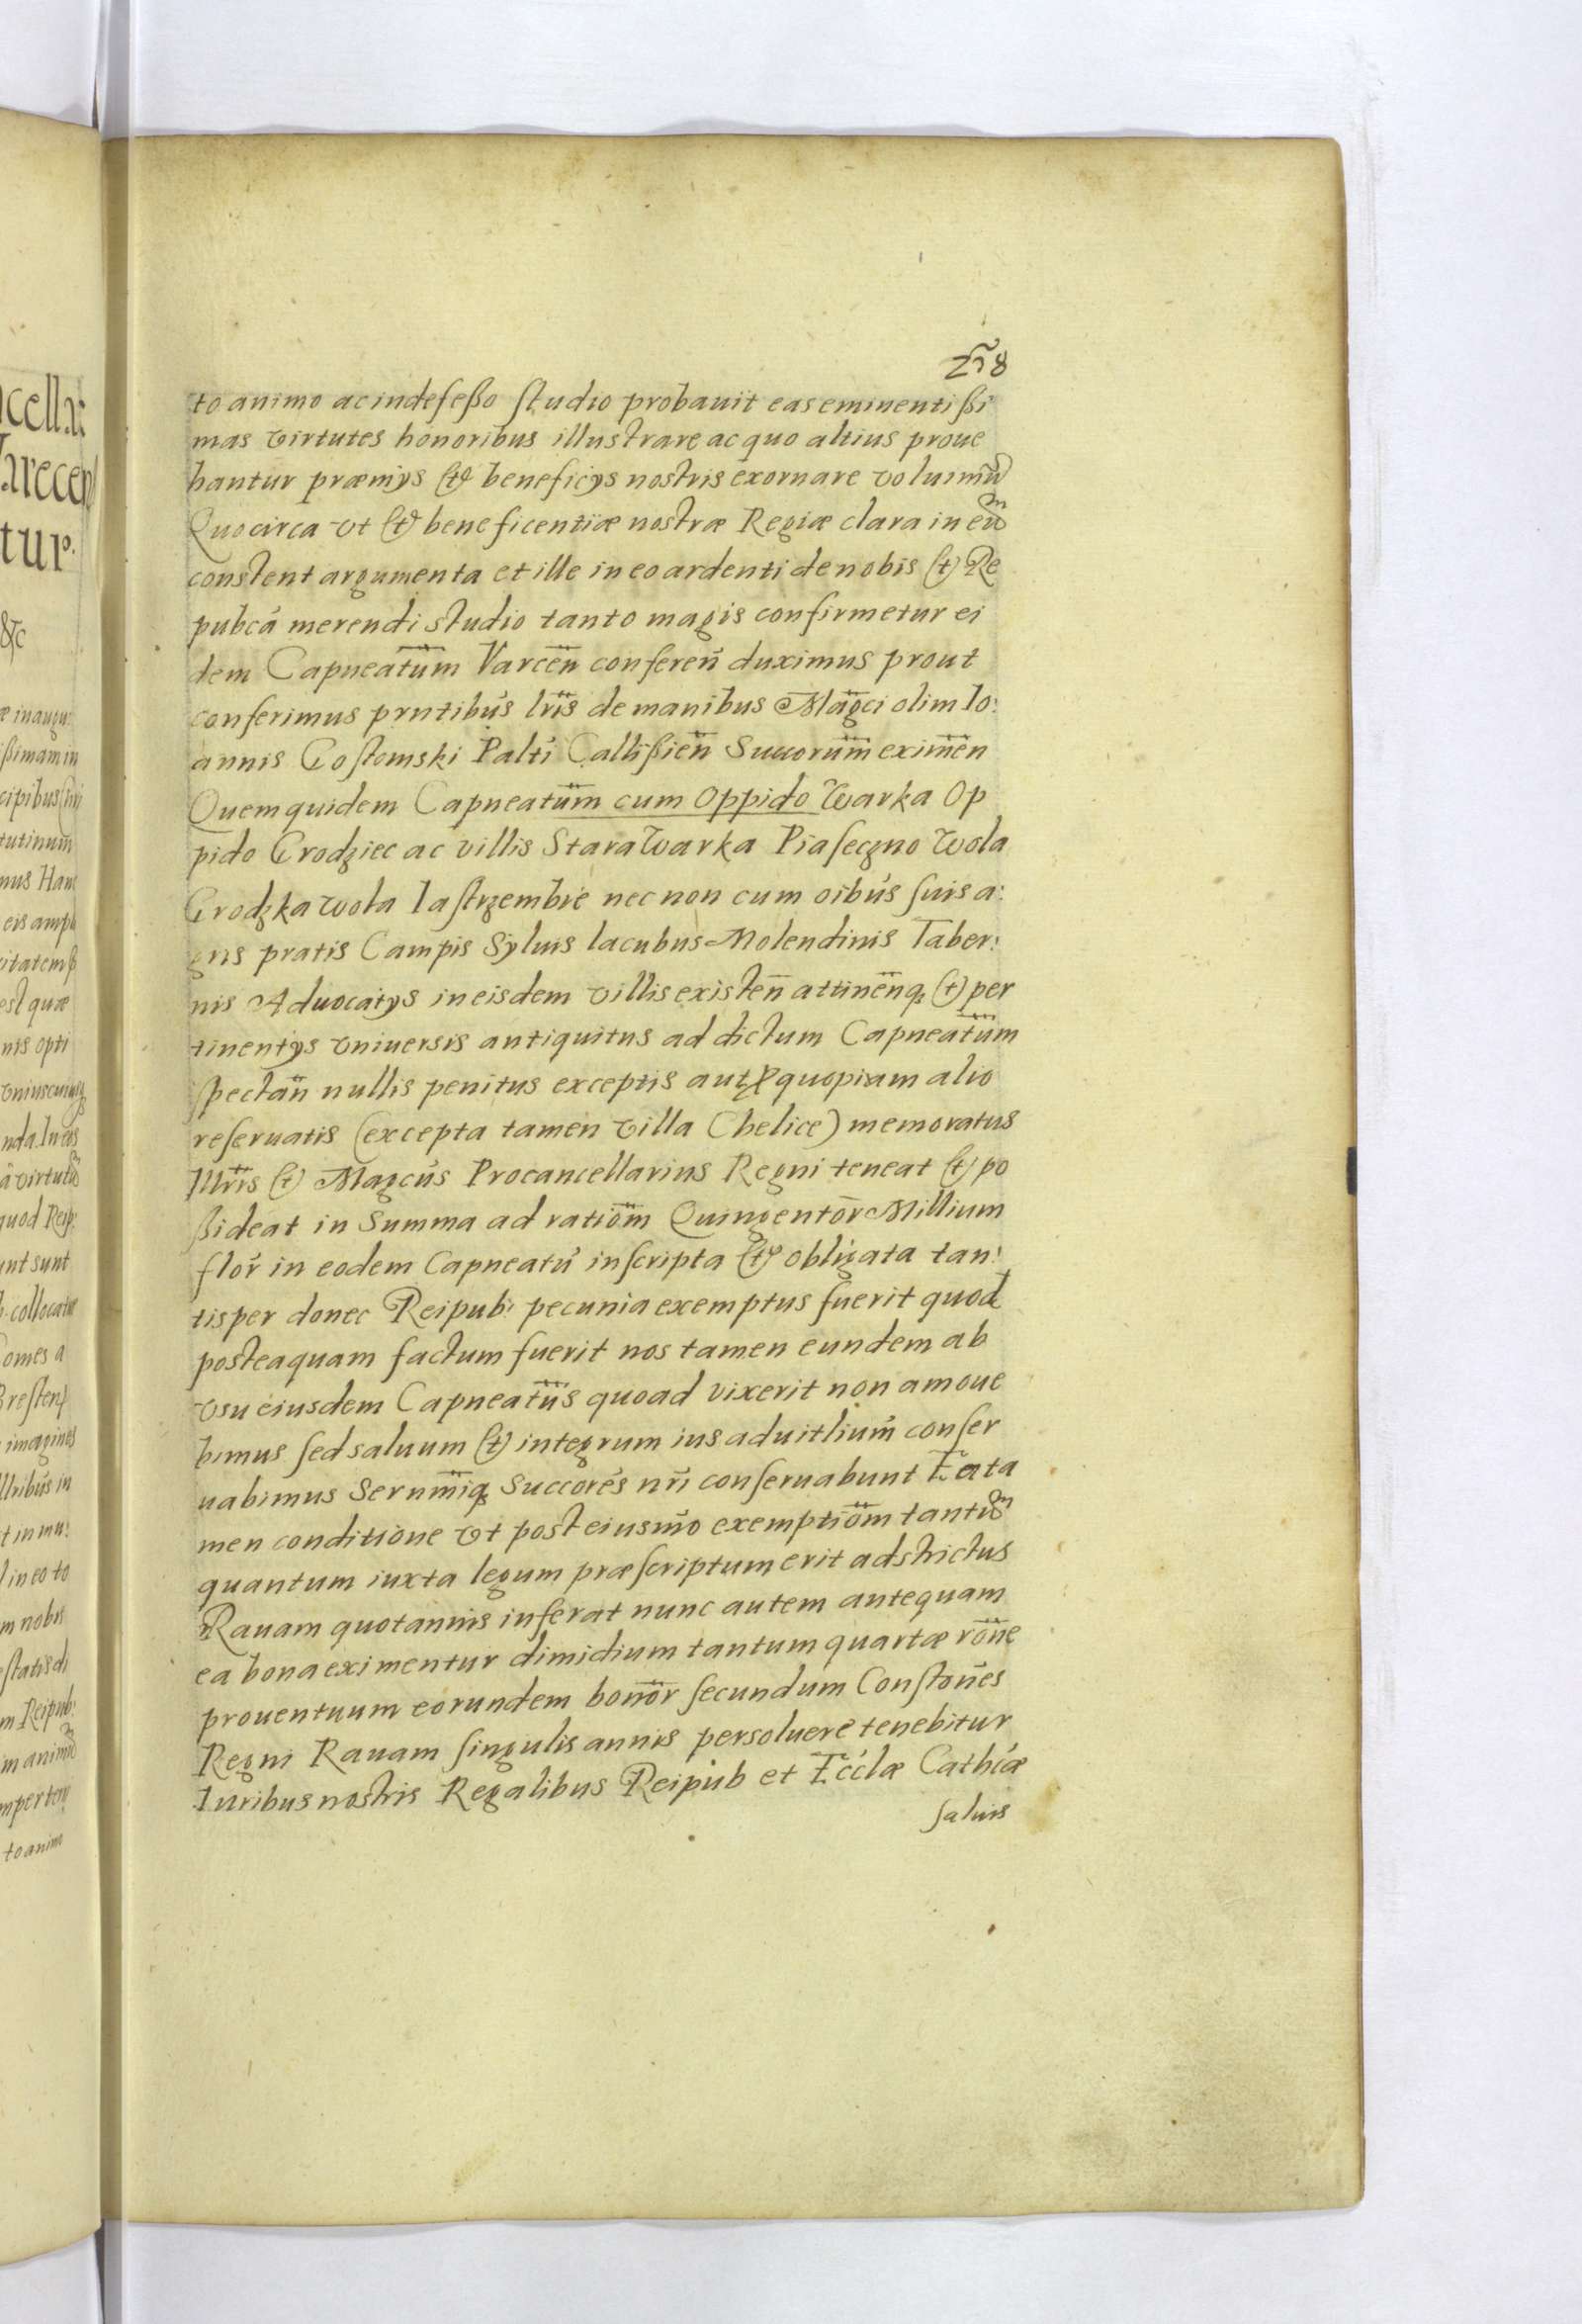 218
to animo ac indefeßo studio probauit eas eminentißi
mas virtutes honoribus illustrare ac quo altius proue
hantur præmijs et beneficijs nostris exornare voluimu
Quocirca vt et beneficentiæ nostræ Regiæ clara in eum
constent argumenta et ille in eo ardenti de nobis et Re
pubcá merendi studio tanto magis confirmetur ei
dem Capneatum̃ Varceñ conferen̄ duximus prout
conferimus prntibús lrĩs de manibus Magc̃i olim Io:
annis Gostomski Palti Callißieñ Succorum̃ eximeñ
Quem quidem Capneatum̃ cum Oppido Warka Op
pido Grodziec ac villis Stara Warka Piaseczno Wola
Grodzka wola Iastrzembie nec non cum oibús suis a:
gris pratis Campis Syluis lacubus Molendinis Taber:
nis Aduocatijs in eisdem villis existeñ attineñq, et per
tinentijs vniuersis antiquitus ad dictum Capneatum̃
spectañ nullis penitus exceptis aut ꝓ quopiam alio
reseruatis (excepta tamen villa Chelice) memoratus
Illrĩs et Magcús Procancellarius Regni teneat et po
ßideat in Summa ad ratiom̃ Quingentor̄ Millium
flor̃ in eodem Capneatú inscripta et obligata tan:
tisper donec Reipub: pecunia exemptus fuerit quod
posteaquam factum fuerit nos tamen eundem ab
vsu eiusdem Capneatus̃ quoad vixerit non amoue
bimus sed saluum et integrum ius aduitlium̃ conser
uabimus Sernmĩq, Succorés nrĩ conseruabunt Ea ta
men conditione vt post eiusmo exemptiom̃ tantum
quantum iuxta legum præscriptum erit adstrictus
Rauam quotannis inferat nunc autem antequam
ea bona eximentur dimidium tantum quartæ roñe
prouentuum eorundem bonor̃ secundum Constoñes
Regni Rauam singulis annis persoluere tenebitur
Iuribus nostris Regalibus Reipub et Ecclæ Cathcæ
saluis